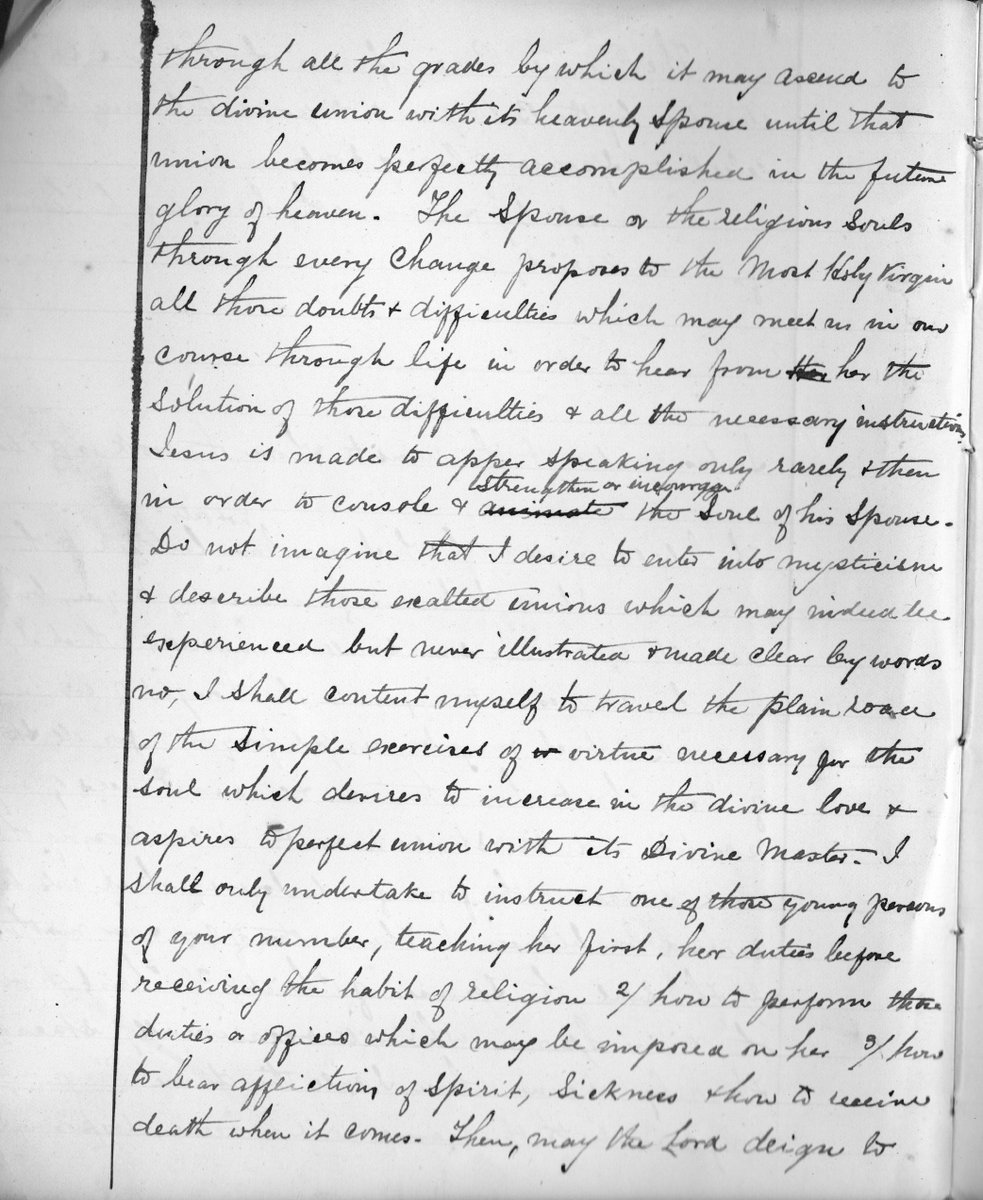 through all the grades by which it may ascend to
the divine union with its heavenly Spouse until that
union becomes perfectly accomplished in the future
glory of heaven. The Spouse or the religious Souls
through every Change proposes to the Most Holy Virgin
all those doubts & difficulties which may meet us in our
course through life in order to hear from her her the
Solution of those difficulties & all the necessary instructions
Jesus is made to apper speaking only rarely & then
strengthen or incourage
in order to console & animate the Soul of his Spouse.
Do not imagine that I desire to enter into mysticism
& describe those exalted unions which may indeed be
experienced but never illustrated & made clear by words
no, I Shall content myself to travel the plain road
of the Simple exercises of or virtue necessary for the
soul which desires to increase in the divine love &
aspires to perfect union with its Divine Master. I
Shall only undertake to instruct one of those young persons
of your number, teaching her first, her duties before
receiving the habit of religion 2/ how to perform those
duties or offices which may be imposed on her 3/ how
to bear afflictions of Spirit, Sickness & how to receive
death when it comes. Then, may the Lord deign to